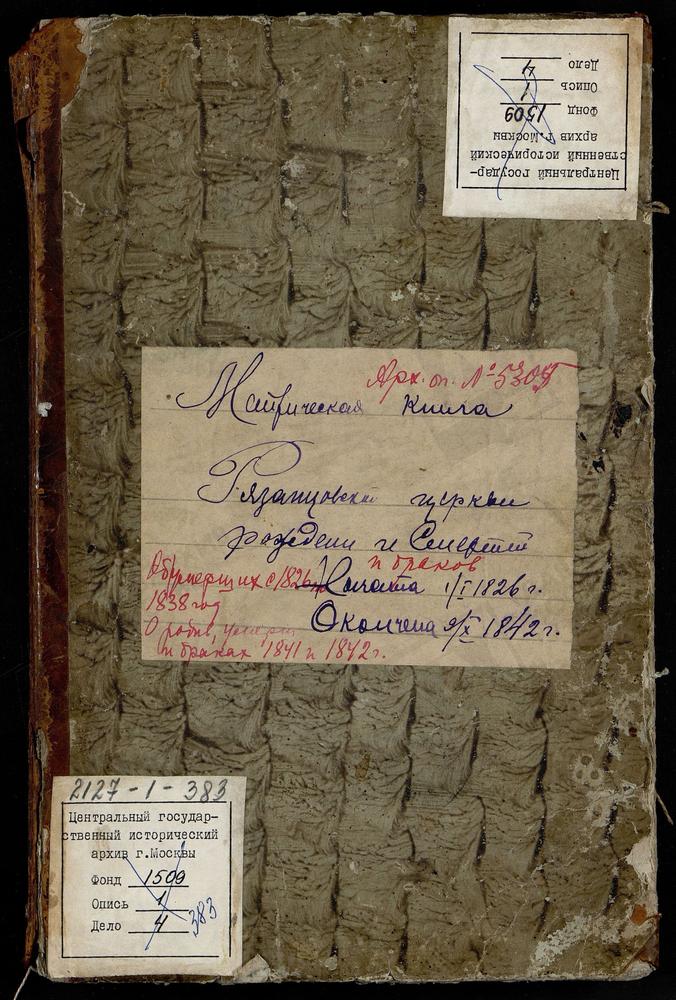 Центральный государ-
ственный исторический
архив г.Москвы
Фонд 1509
Опись 1
Дело 4
Арх. оп. № 5305
Метрическая Книга
Рязанцовской церкви
рождени и Смертии
и браков
Об умерщих с 1826 г. Начата 1/I 1826 г.
1838 год
Окончена 9/X 1842 г.
О родив, умерш
и браках 1841 и 1842 г.
2127-1-383
Центральный государ-
ственный исторический
архив г.Москвы
Фонд 1509
Опись 1
Дело 4 383